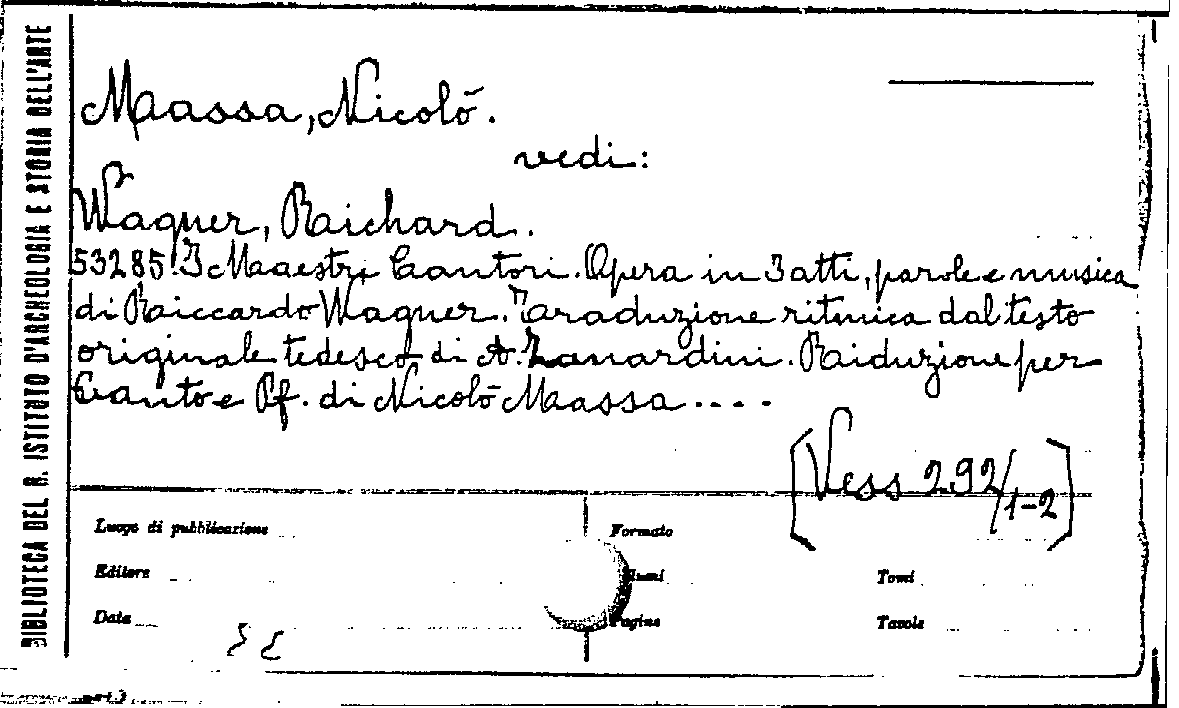 BIBLIOTECA DEL R. ISTITUTO D'ARCHEOLOGIA E STORIA DELL'ARTE
Massa, Nicolò.
vedi:
Wagner, Richard.
53285. I Maestri Cantori. Opera in 3 atti, parole e musica
di Riccardo Wagner. Traduzione ritmica dal testo
originale tedesco di A. Zanardini. Riduzione per
Canto e Pf. di Nicolò Massa ....
[Vess 292/1-2]
Luogo di pubblicazione
Formato
Editore
Tomi
Data
Pagine
Tavole